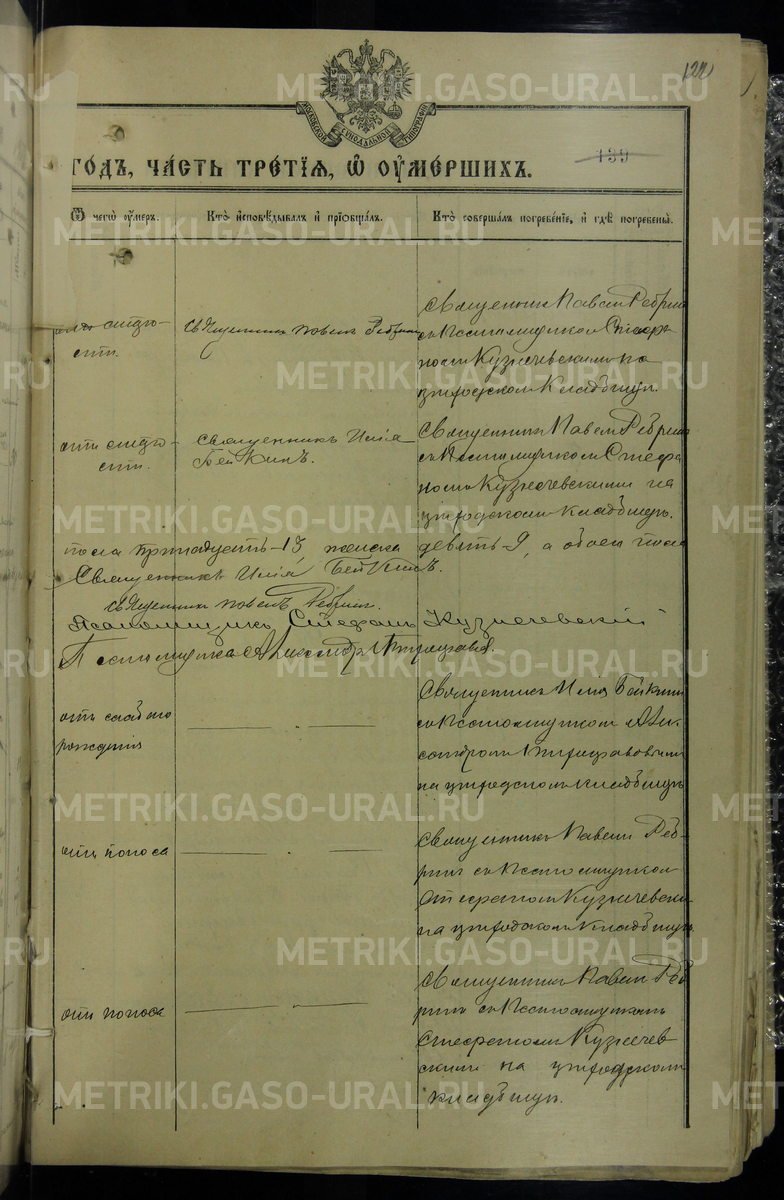 120
МОСКОВСКОЙ СИНОДАЛЬНОЙ ТИПОГРАФІИ
139
годъ, часть третїѧ, ѡ оумершихъ.
Ѿ чегѡ оумеръ. Кто исповѣдывалъ и прїобщалъ. Кто совершалъ погребенїе, и гдѣ погребены.
старо-
сти.
Священникъ Павелъ Ребринъ
Священникъ Павелъ Ребринъ
съ Псаломщикомъ Стефа
номъ Кузнечевскимъ на
приходскомъ кладбищѣ.
отъ старо-
сти.
Священникъ Илія
Бейкинъ.
Священникъ Павелъ Ребринъ
съ Псаломщикомъ Стефа
номъ Кузнечевскимъ на
приходскомъ кладбищѣ.
пола тринадцать-13, женска девять 9, а обоего пола
Священникъ Илія Бейкинъ.
Священникъ Павелъ Ребринъ.
Псаломщикъ Стефанъ Кузнечевскій
Псаломщикъ Александръ
отъ слабаго
рожденія
Священникъ Илія Бейкинъ
съ Псаломщикомъ Алек-
сандромъ
на приходскомъ кладбищѣ
отъ поноса
Священникъ Павелъ Реб-
ринъ съ Псаломщикомъ
Стефаномъ Кузнечевским
на приходскомъ кладбищѣ.
отъ поноса
Священникъ Павелъ Реб
ринъ съ Псаломщикомъ
Стефаномъ Кузнечев
скимъ на приходскомъ
кладбищѣ.
METRIKI.GASO-URAL.RU